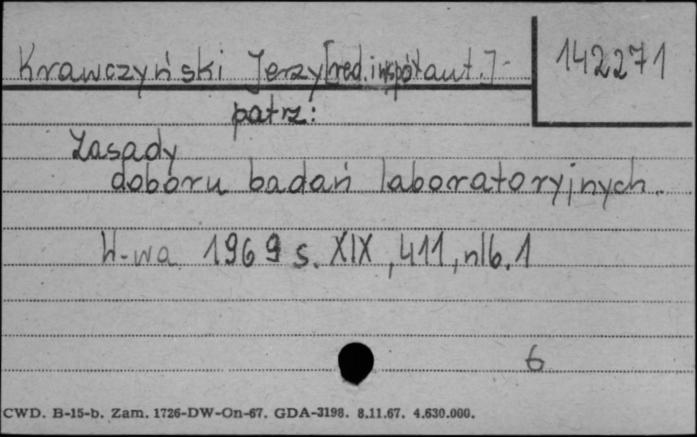 Krawczyński Jerzy [red. i współaut.]- 142271
patrz:
Zasady
doboru badań laboratoryjnych.
W-wa 1969 s. XIX, 411, nlb. 1
6
CWD. B-15-b. Zam. 1726-DW-On-67. GDA-3198. 8.11.67. 4.630.000.